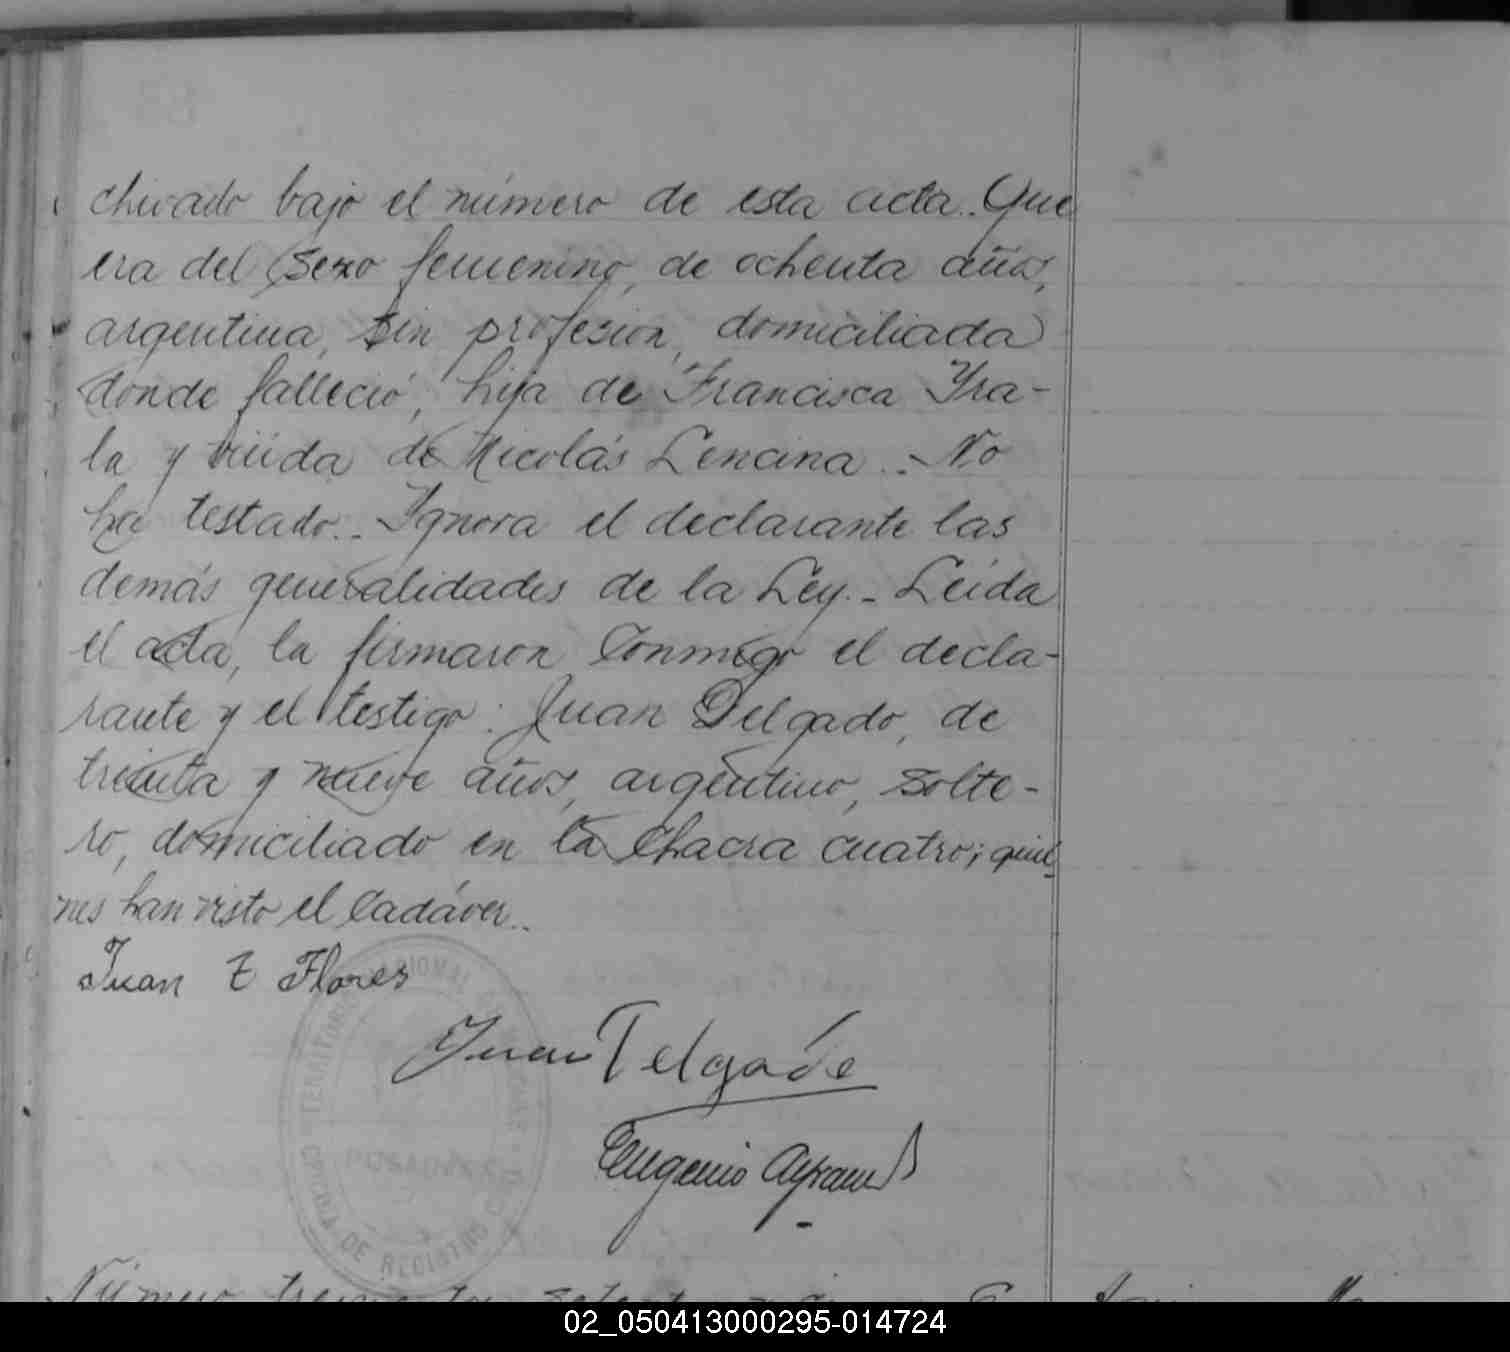 chivado bajo el número de esta acta.. Que
era del sexo femenino, de ochenta años,
argentina, sin profesión, domiciliada
donde falleció, hija de Francisca Yra-
la y viúda de Nicolás Lencina.. No
ha testado.. Ignora el declarante las
demás generalidades de la Ley.- Leída
el acta, la firmaron conmigo el decla-
rante y el testigo: Juan Delgado, de
treinta y nueve años, argentino, solte-
ro, domiciliado en la chacra cuatro; quie
nes han visto el cadáver..
Juan Z Flores
Juan Delgado
Eugenio
POSADAS
DE REGISTRO
02_050413000295-014724